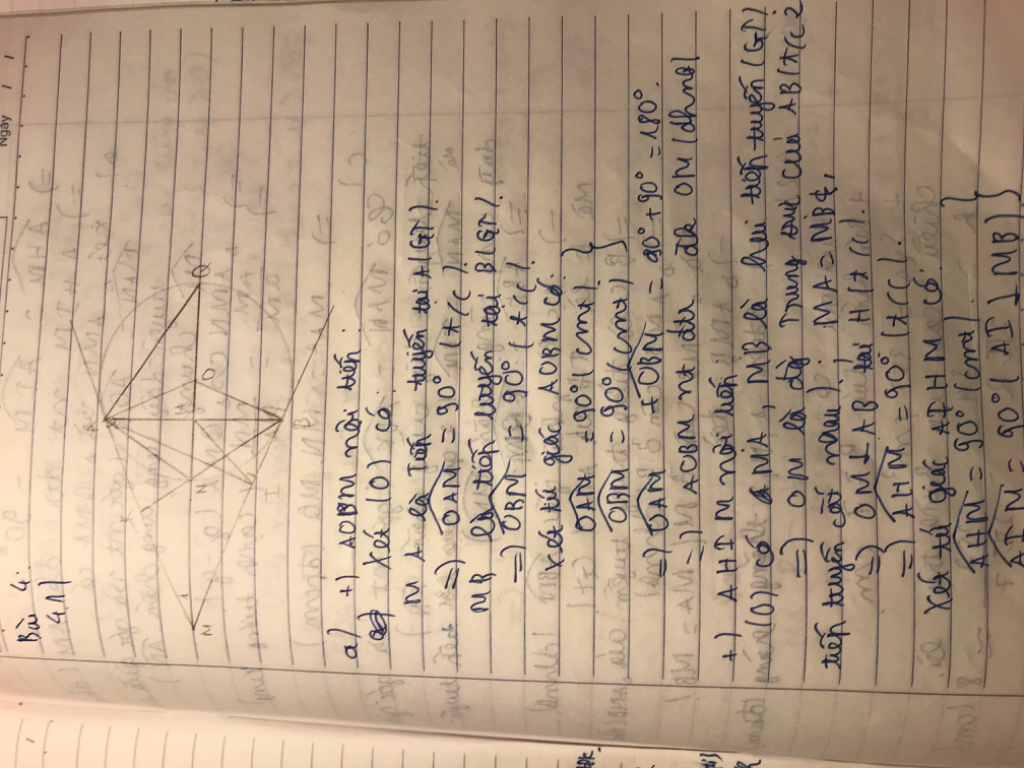 Ngày
Bài 4.
4.1)
A
K
M
N
H
O
Q
I
B
a) +) AOBM nội tiếp
Xét (O) có
MA là tiếp tuyến tại A (GT).
=) OAM = 90° (t/c).
MB là tiếp tuyến tại B (GT)
=) OBM = 90° (t/c).
Xét tứ giác AOBM có.
OAM = 90° (cmt) }
OBM = 90° (cmt)
=) OAM + OBM = 90° + 90° = 180°.
=) AOBM nt đtr đk OM (dhnb)
+) AHIM nội tiếp
(O) có MA, MB là hai tiếp tuyến (GT).
=) OM là đg trung trực của AB (t/c 2
tiếp tuyến cắt nhau). MA = MB
=) OM ⊥ AB tại H (t/c).
=) AHM = 90° (t/c).
Xét tứ giác AIHM có.
AHM = 90° (cmt) }
AIM = 90° (AI ⊥ MB)